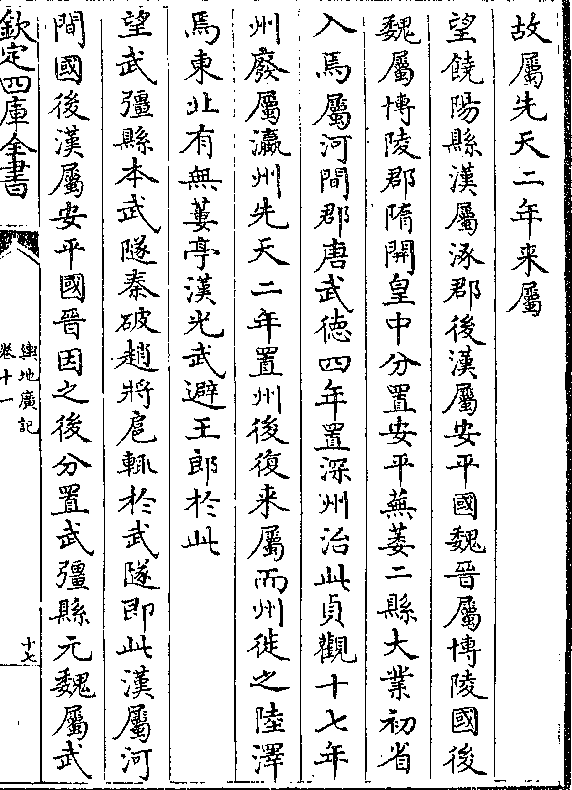 故屬先天二年来屬
望饒陽縣漢屬涿郡後漢屬安平國魏晉屬博陵國後
魏屬博陵郡隋開皇中分置安平蕪蔞二縣大業初省
入焉屬河間郡唐武徳四年置深州治此貞觀十七年
州廢屬瀛州先天二年置州後復来屬而州徙之陸澤
焉東北有無蔞亭漢光武避王郎於此
望武彊縣本武隧秦破趙將扈輒於武隧即此漢屬河
間國後漢屬安平國晉因之後分置武彊縣元魏屬武
欽定四庫全書
輿地廣記
卷十一
十七